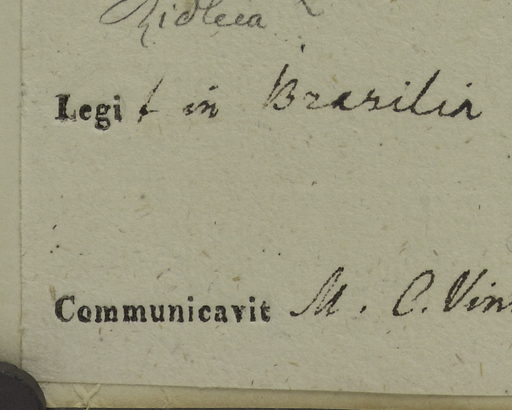 Ridleea
Legit in Brasilia
Communicavit M. C. Vin